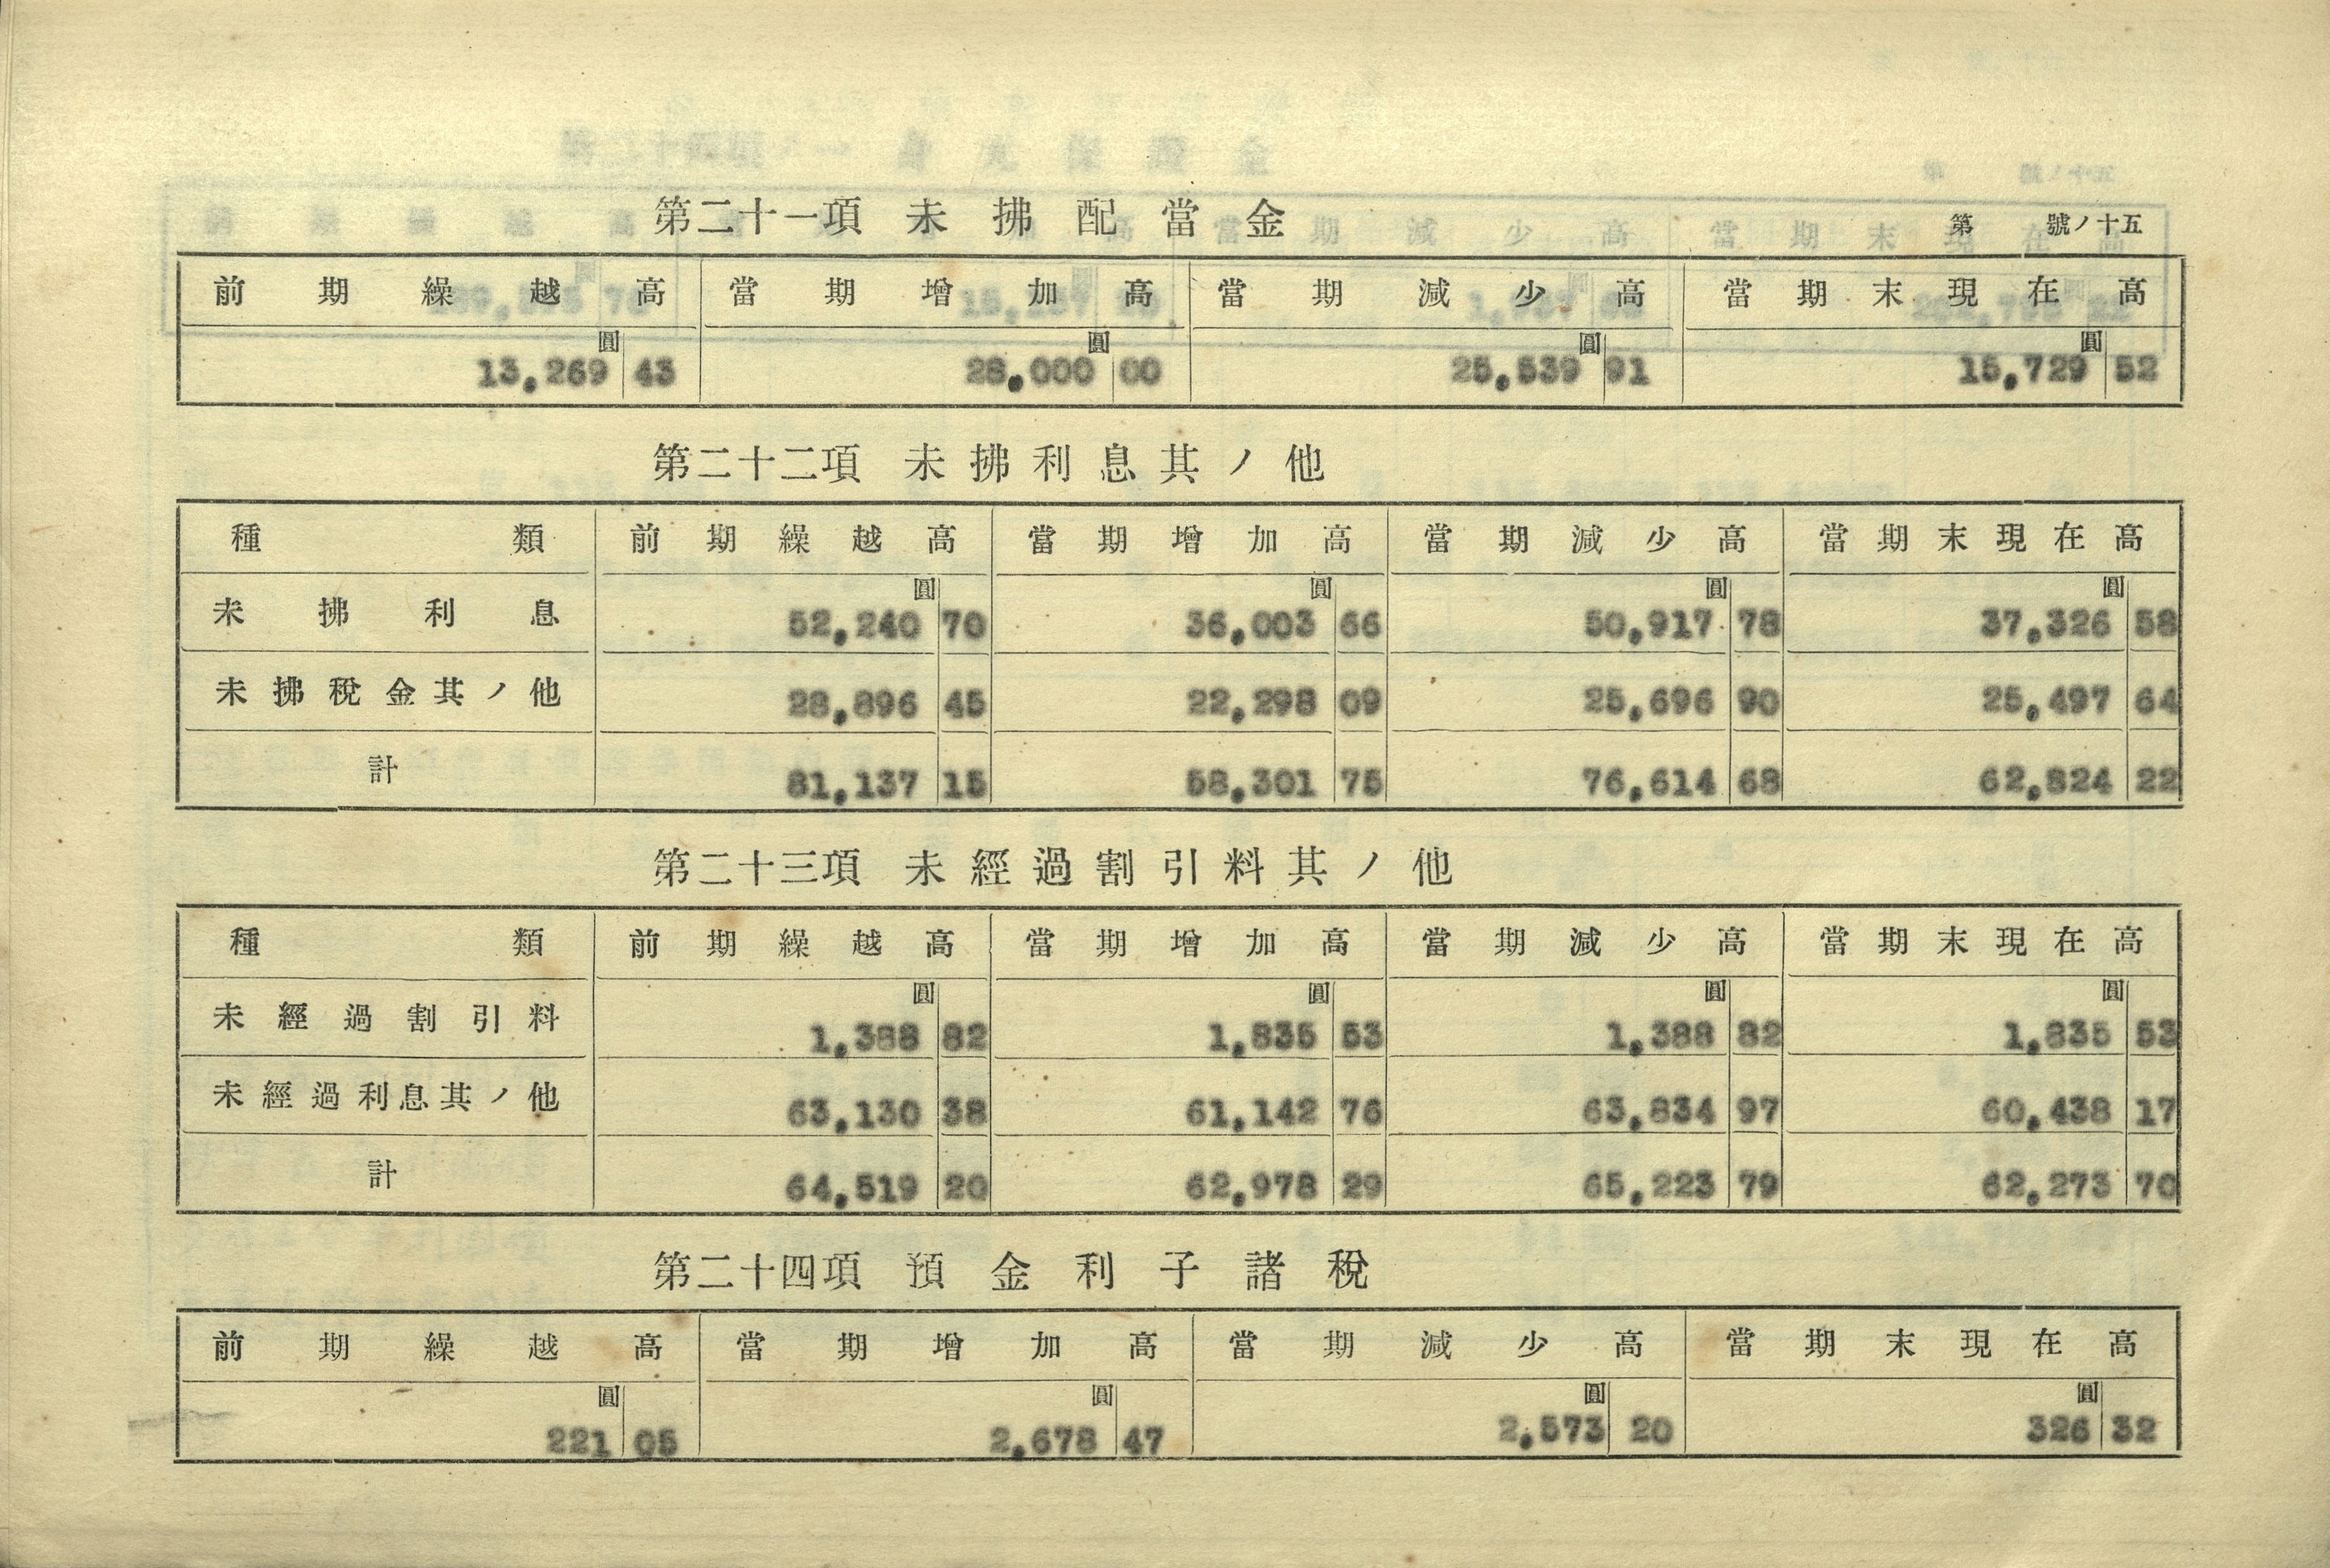 第二十一項 未拂配當金 第 號ノ十五
前期繰越高 當期增加高 當期減少高 當期末現在高
圓 圓 圓 圓
13,269 43 28,000 00 25,539 91 15,729 52
第二十二項 未拂利息其ノ他
種類 前期繰越高 當期增加高 當期減少高 當期末現在高
圓 圓 圓 圓
未拂利息 52,240 70 36,003 66 50,917 78 37,326 58
未拂稅金其ノ他 28,896 45 22,298 09 25,696 90 25,497 64
計 81,137 15 58,301 75 76,614 68 62,824 22
第二十三項 未經過割引料其ノ他
種類 前期繰越高 當期增加高 當期減少高 當期末現在高
圓 圓 圓 圓
未經過割引料 1,388 82 1,835 53 1,388 82 1,835 53
未經過利息其ノ他 63,130 38 61,142 76 63,834 97 60,438 17
計 64,519 20 62,978 29 65,223 79 62,273 70
第二十四項 預金利子諸稅
前期繰越高 當期增加高 當期減少高 當期末現在高
圓 圓 圓 圓
221 05 2,678 47 2,573 20 326 32